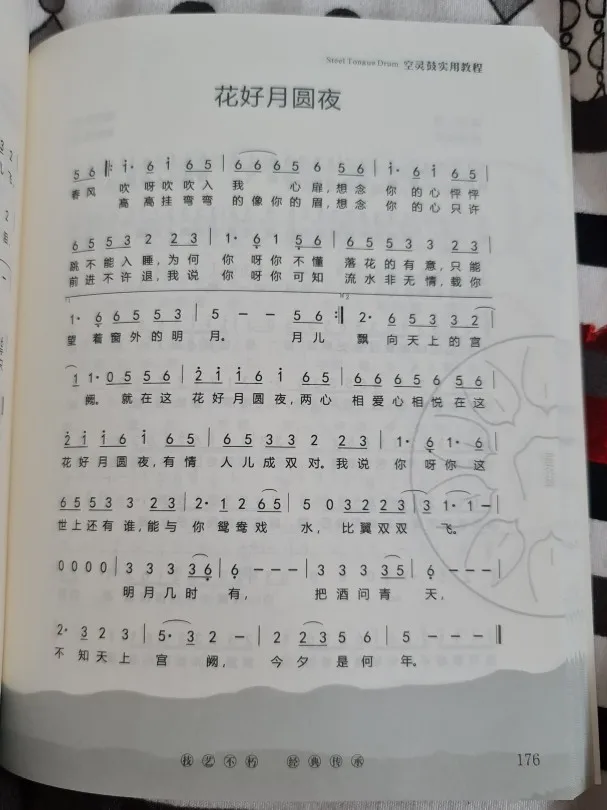 Steel Tongue Drum 空灵鼓实用教程
花好月圆夜
5̣ 6̣ ‖: i· 6 i 6 5 | 6 6 6 5 6 5 6 | i· 6 i 6 5 |
春风 吹呀吹吹入 我 心扉,想念 你的心怦怦
高高挂弯弯 的像你的眉,想念 你的心只许
6 5 5 3 2 2 3 | 1· 6̣ 1 5̣ 6̣ | 6 5 5 3 3 2 3 |
跳不能入睡,为何 你呀你不懂 落花的有意,只能
前进不许退,我说 你呀你可知 流水非无情,载你
1· 6̣ 6 6 5 5 3 | 5 – – 5 6 :‖ 2· 6̣ 3 3 2 |
望着窗外的明月。 月儿 飘向天上的宫
1 1· 0 5 5 6 | 2̇ i i 6 i 6 5 | 6 6 6 5 6 5 6 |
阙。 就在这 花好月圆夜,两心 相爱心相悦在这
2̇ i i 6 i 6 5 | 5 3 2 3 2 2 3 | 1· 6̣ 1· 6̣ |
花好月圆夜,有情 人儿成双对。我说 你呀你这
6 5 5 3 3 2 3 | 2· 1 2 6 5 | 5 0 3 2 2 3 | 3 1· 1 – |
世上还有谁,能与 你鸳鸯戏 水,比翼双双 飞。
0 0 0 0 | 3 3 3 3 6̣ | 6̣ – – – | 3 3 3 3 5 | 6̣ – – – |
明月几时 有, 把酒问青 天,
2· 3 2 3 | 5· 3 2 – – | 2 2 3 5 6 | 5 – – – ‖
不知天上 宫 阙, 今夕 是何 年。
技艺不朽 经典传承
176